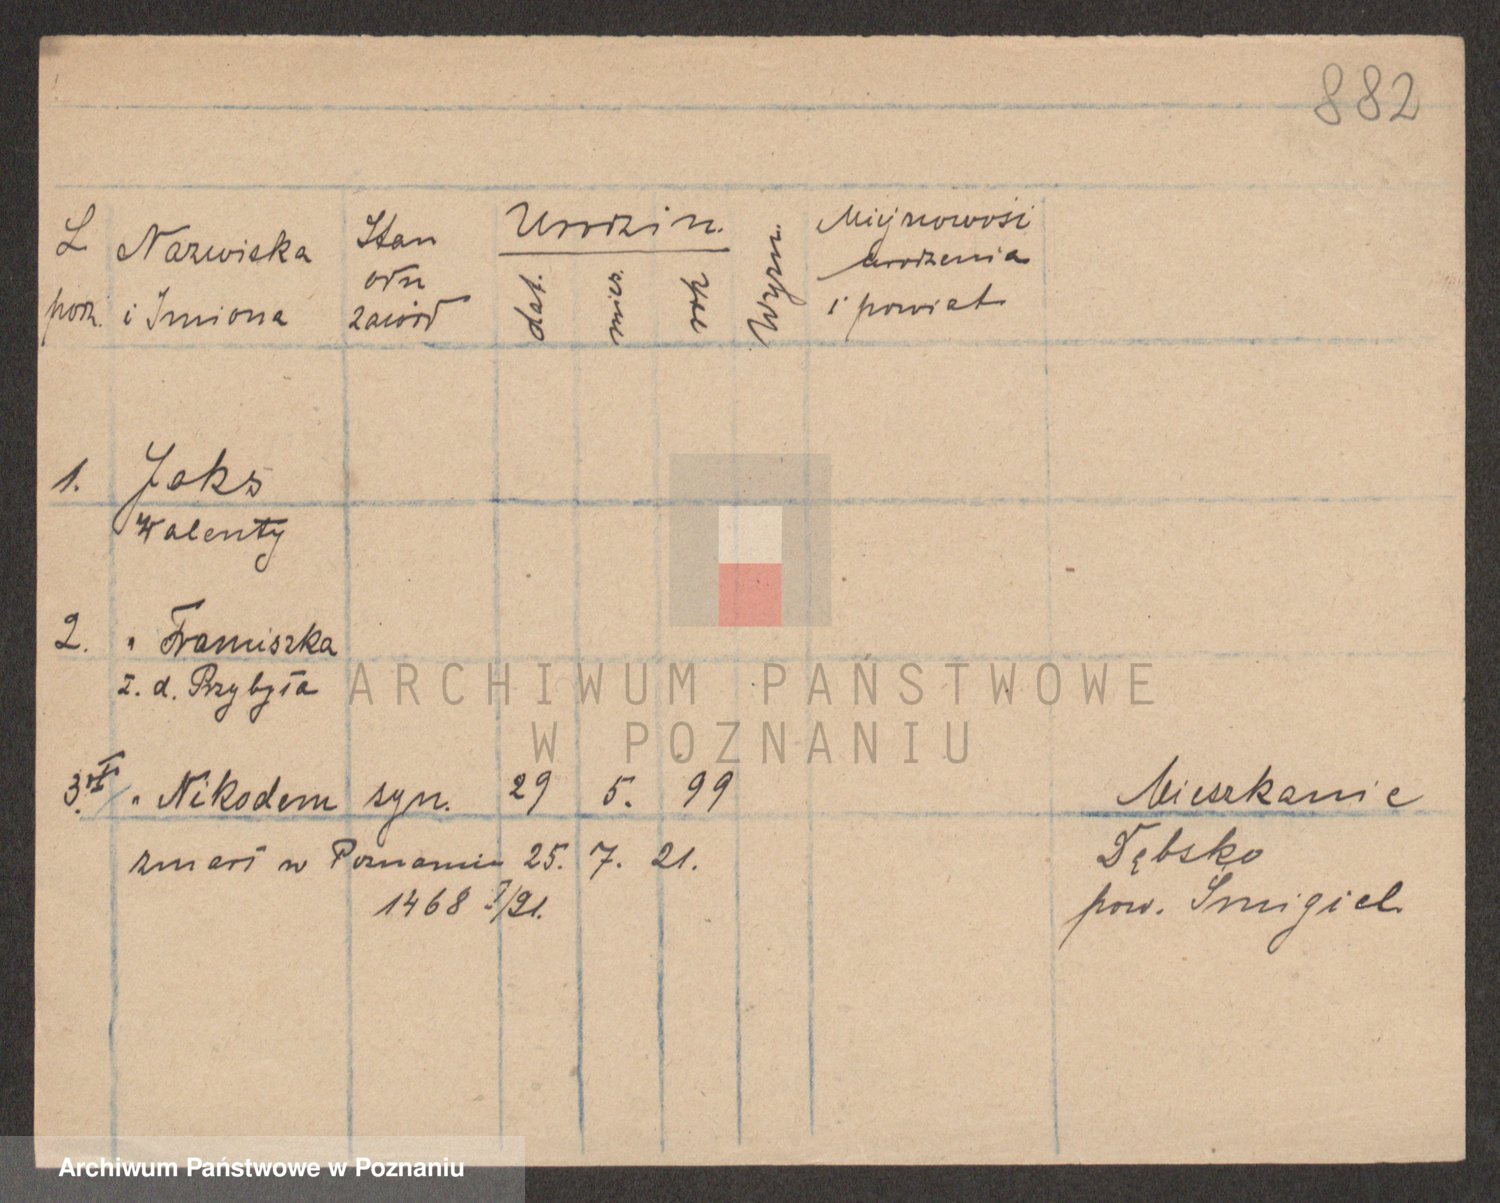 882
L. porz.
Nazwiska i Imiona
Stan odn zawód
Urodzin.
dat.
mies.
rok
Wyzn.
Miejscowość urodzenia i powiat
1. Jaks
Walenty
2. " Franciszka
z. d. Przybyła
3. " Nikodem syn. 29 5. 99 Mieszkanie
zmarł w Poznaniu 25. 7. 21. Dębsko
1468 I/21. pow. Śmigiel.
ARCHIWUM PAŃSTWOWE
W POZNANIU
Archiwum Państwowe w Poznaniu